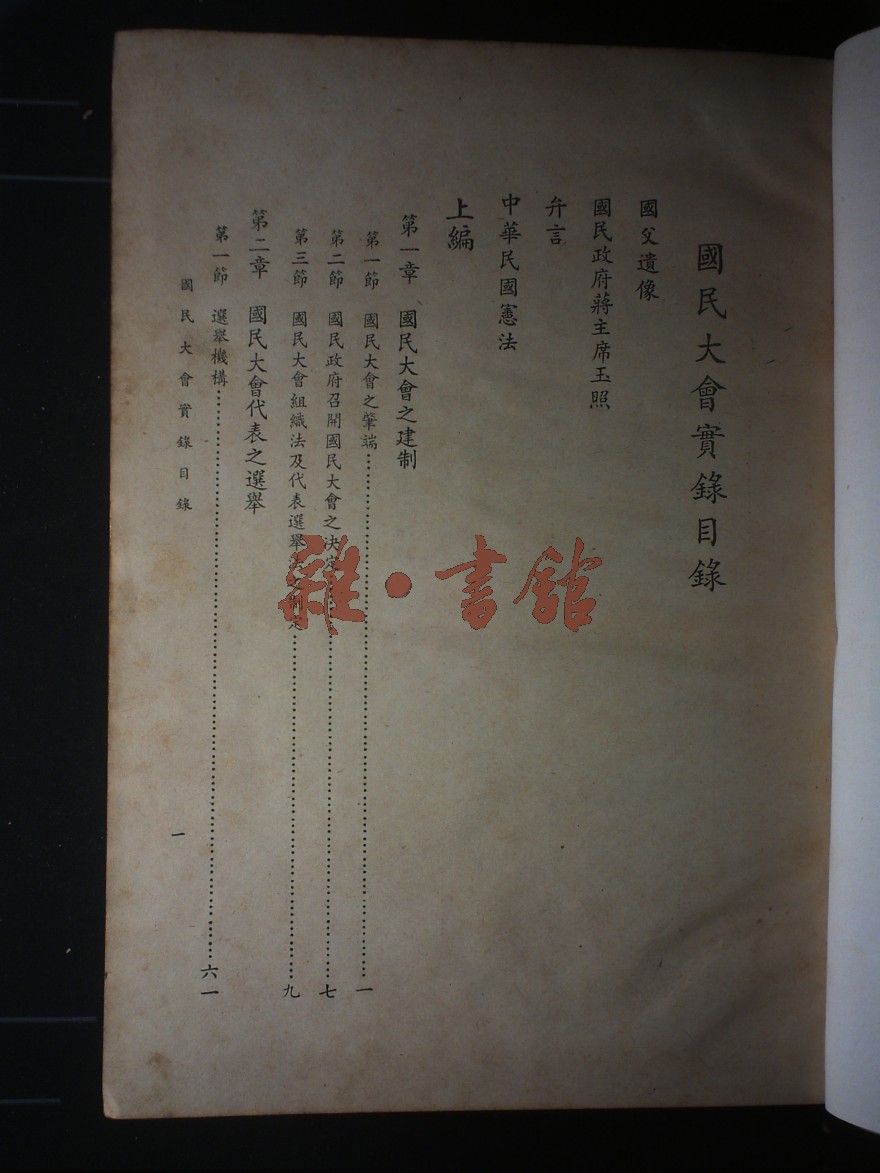 國民大會實錄目錄
國父遺像
國民政府蔣主席玉照
弁言
中華民國憲法
上編
第一章 國民大會之建制
第一節 國民大會之肇端……一
第二節 國民政府召開國民大會之決定……七
第三節 國民大會組織法及代表選舉……九
第二章 國民大會代表之選舉
第一節 選舉機構……六一
國民大會實錄目錄
一
雜·書館